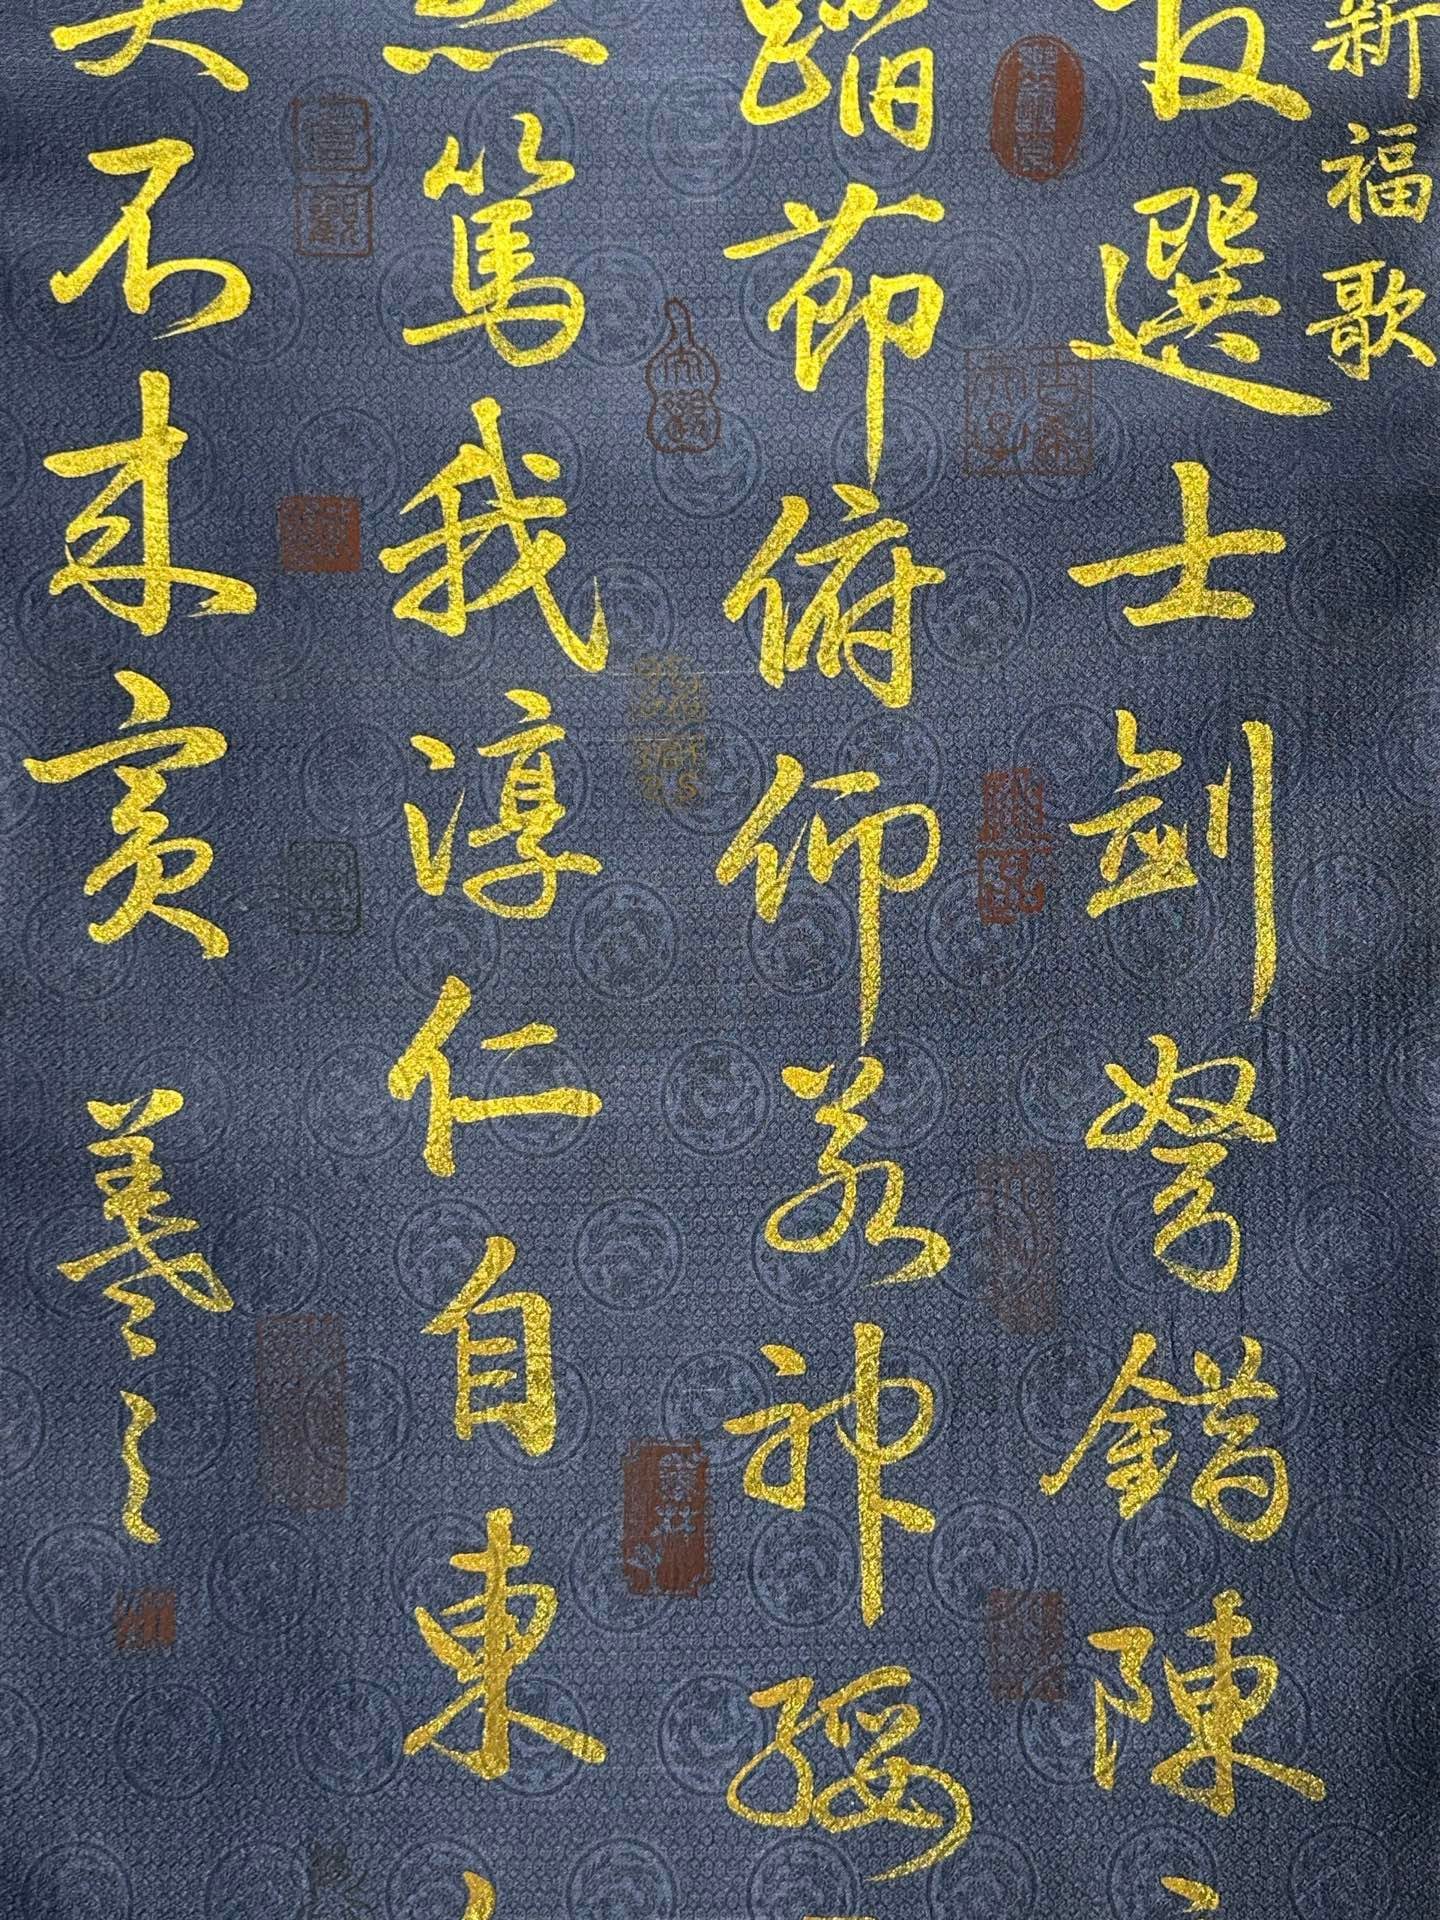 新福歌
選士劍弩錯陳
蹈節俯仰若神綏
篤我淳仁自東
不來賓 羲之